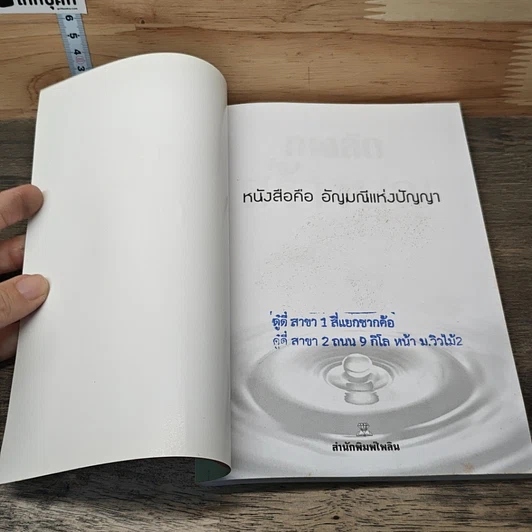 6 5 4 3
หนังสือคือ อัญมณีแห่งปัญญา
ดู๋ดี๋ สาขา 1 สี่แยกซากค้อ
ดู๋ดี๋ สาขา 2 ถนน 9 กิโล หน้า ม.วิวไม้2
สำนักพิมพ์ไพลิน